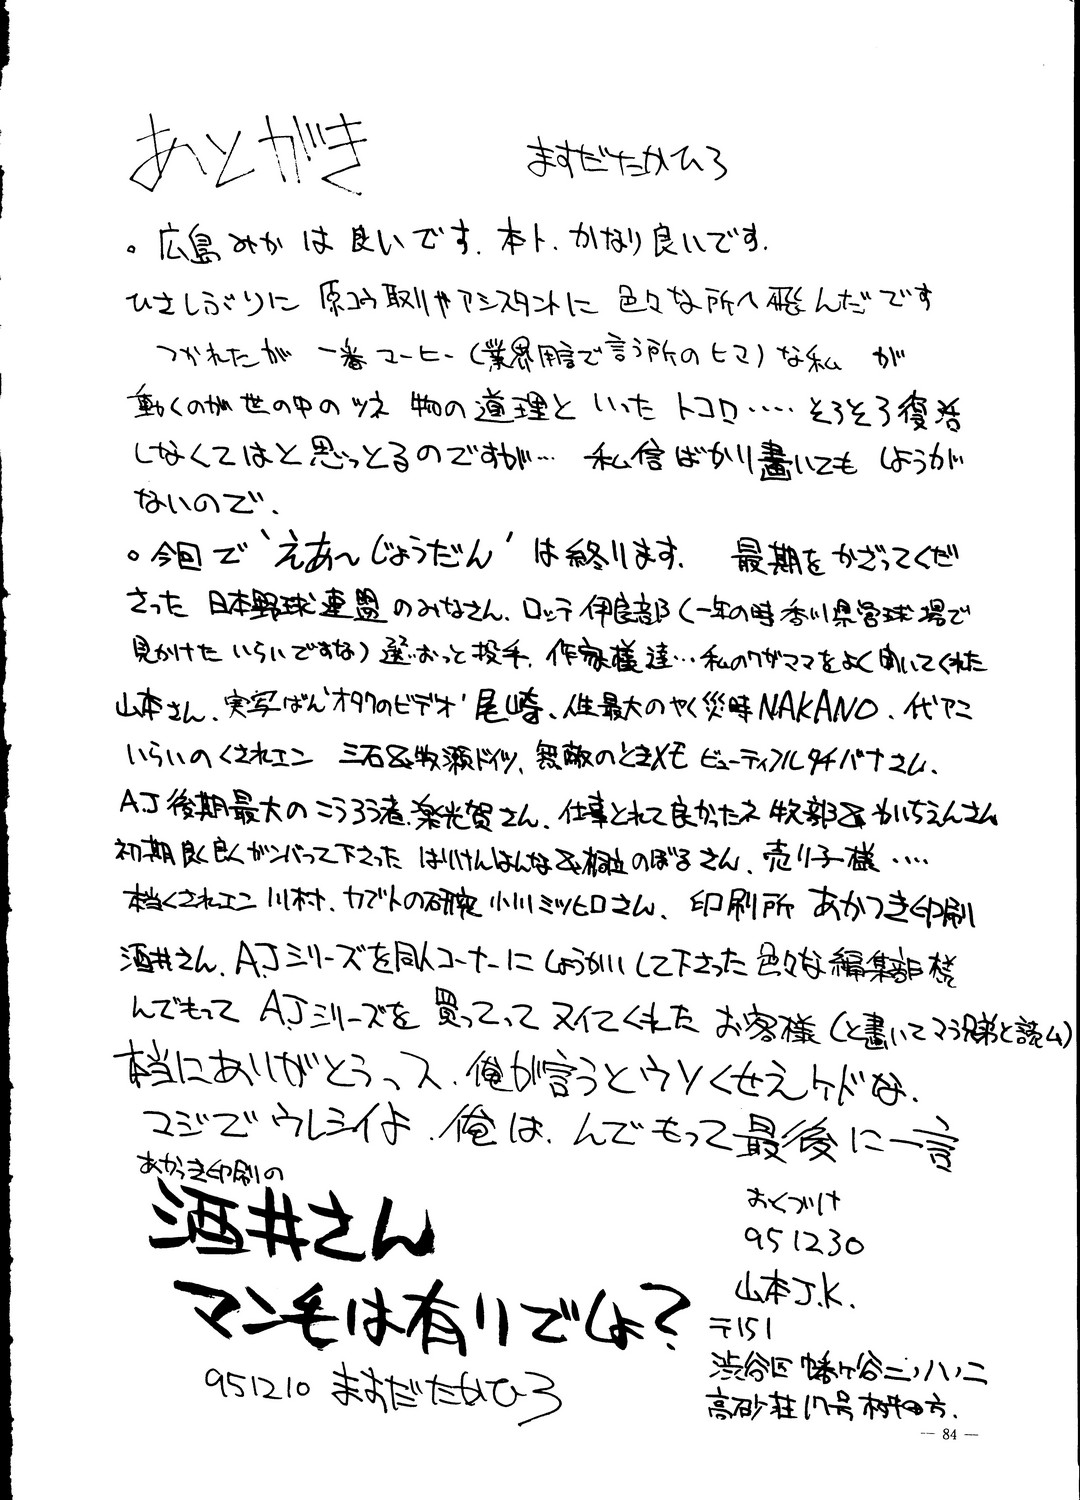 あとがき
ますだたかひろ
。広島みかは良いです.本ト.かなり良いです.
ひさしぶりに 原コウ取りやアシスタントに 色々な所へ飛んだです
つかれたが 一番コーヒー(業界用言で言う所のヒマ)な私 が
動くのが世の中のツネ 物の道理と いった トコロ････そろそろ復活
しなくてはと思っとるのですが… 私信ばかり書いても しょうが
ないので.
。今回で'えあ〜じょうだん'は終ります. 最期をかざってくだ
さった 日本野球連盟のみなさん.ロッテ伊良部(一年の時香川県営球場で
見かけた いらいですな)おっと投手.作家様達…私のワガママをよく聞いてくれた
山本さん.実写ばん'オタクのビデオ'尾崎.人生最大のやく災時NAKANO.代アニ
いらいのくされエン 三石&牧瀬ドイツ.無敵のときメモ ビューティフルタチバナさん.
A.J後期最大のこうろう者.楽光賀さん.仕事とれて良かったネ 牧部&かいちえんさん
初期良く良くガンバって下さった はりけんはんな&桐立のぼるさん.売り子様････
本当くされエン 川村.カブトの研究 小川ミツヒロさん.印刷所 あかつき印刷
酒井さん.A.Jシリーズを同人コーナーにしょうかいして下さった色々な編集部様
んでもって A.Jシリーズを 買ってって ヌイてくれた お客様(と書いてマラ兄弟と読ム)
本当にありがとうっス.俺が言うとウソくせえケドな.
マジでウレシイよ.俺は.んでもって最後に一言
あかつき印刷の
酒井さん
マン毛は有りでしょ?
951210 ますだたかひろ
おくづけ
951230
山本J.K.
〒151
渋谷区幡ヶ谷二ノ八ノ二
高砂荘17号 村田方.
― 84 ―